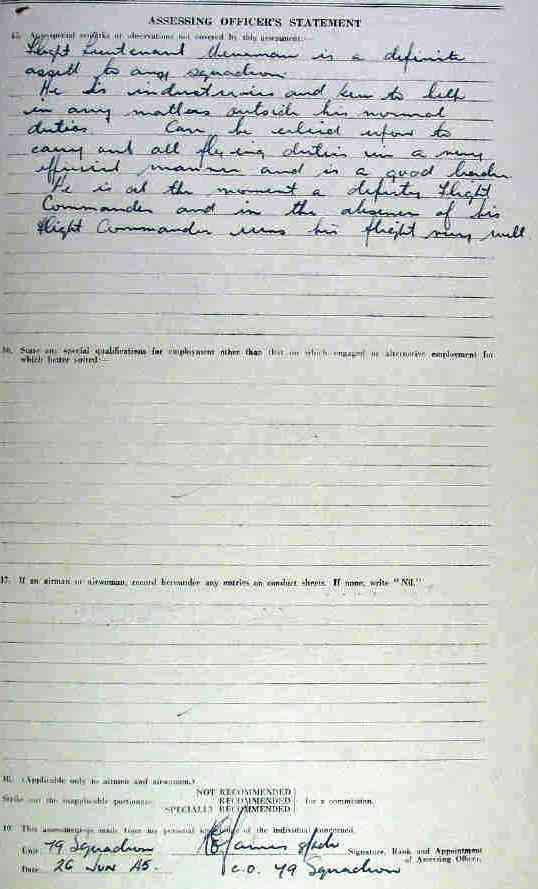 ASSESSING OFFICER'S STATEMENT
15. Any special remarks or observations not covered by this assessment:—
Flight Lieutenant is a definite
assett to any squadron.
He is industrious and keen to help
in any matters outside his normal
duties. Can be relied upon to
carry out all flying duties in a very
efficient manner and is a good leader
He is at the moment a deputy Flight
Commander and in the absence of his
Flight Commander runs his flight very well
16. State any special qualifications for employment other than that on which engaged or alternative employment for
which better suited:—
17. If an airman or airwoman, record hereunder any entries on conduct sheets. If none, write "Nil."
18. (Applicable only to airmen and airwomen.)
NOT RECOMMENDED
Strike out the inapplicable portions: RECOMMENDED for a commission.
SPECIALLY RECOMMENDED
19. This assessment is made from my personal knowledge of the individual concerned.
Unit 79 Squadron Signature, Rank and Appointment
of Assessing Officer.
Date 26 JUN 45. C.O. 79 Squadron